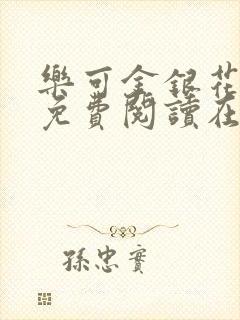 樂可金銀花
免費閱讀在
孫忠實